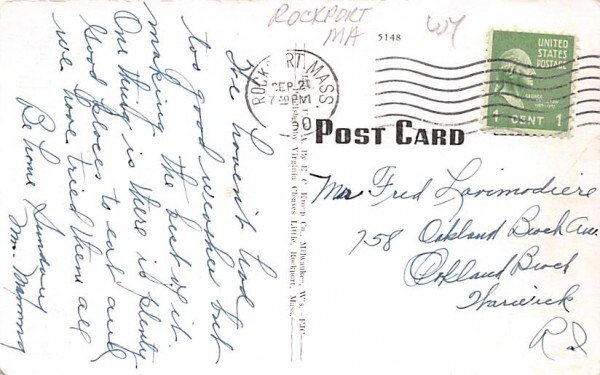 ROCKPORT
MA
5148
ROCKPORT, MASS.
SEP 2
7 30 PM
UNITED
STATES
POSTAGE
1 CENT 1
POST CARD
We haven't had
too good weather but
making the best of it
One thing is there is plenty
Good places to eat and
we have tried them all
Be home Sunday
Wm. Manning
Published by Virginia Cleaves Little, Rockport, Mass.
By E. C. Kropp Co., Milwaukee, Wis.
Mr Fred Lavimodiere
758 Oakland Beach Ave
Oakland Beach
Warwick
R I